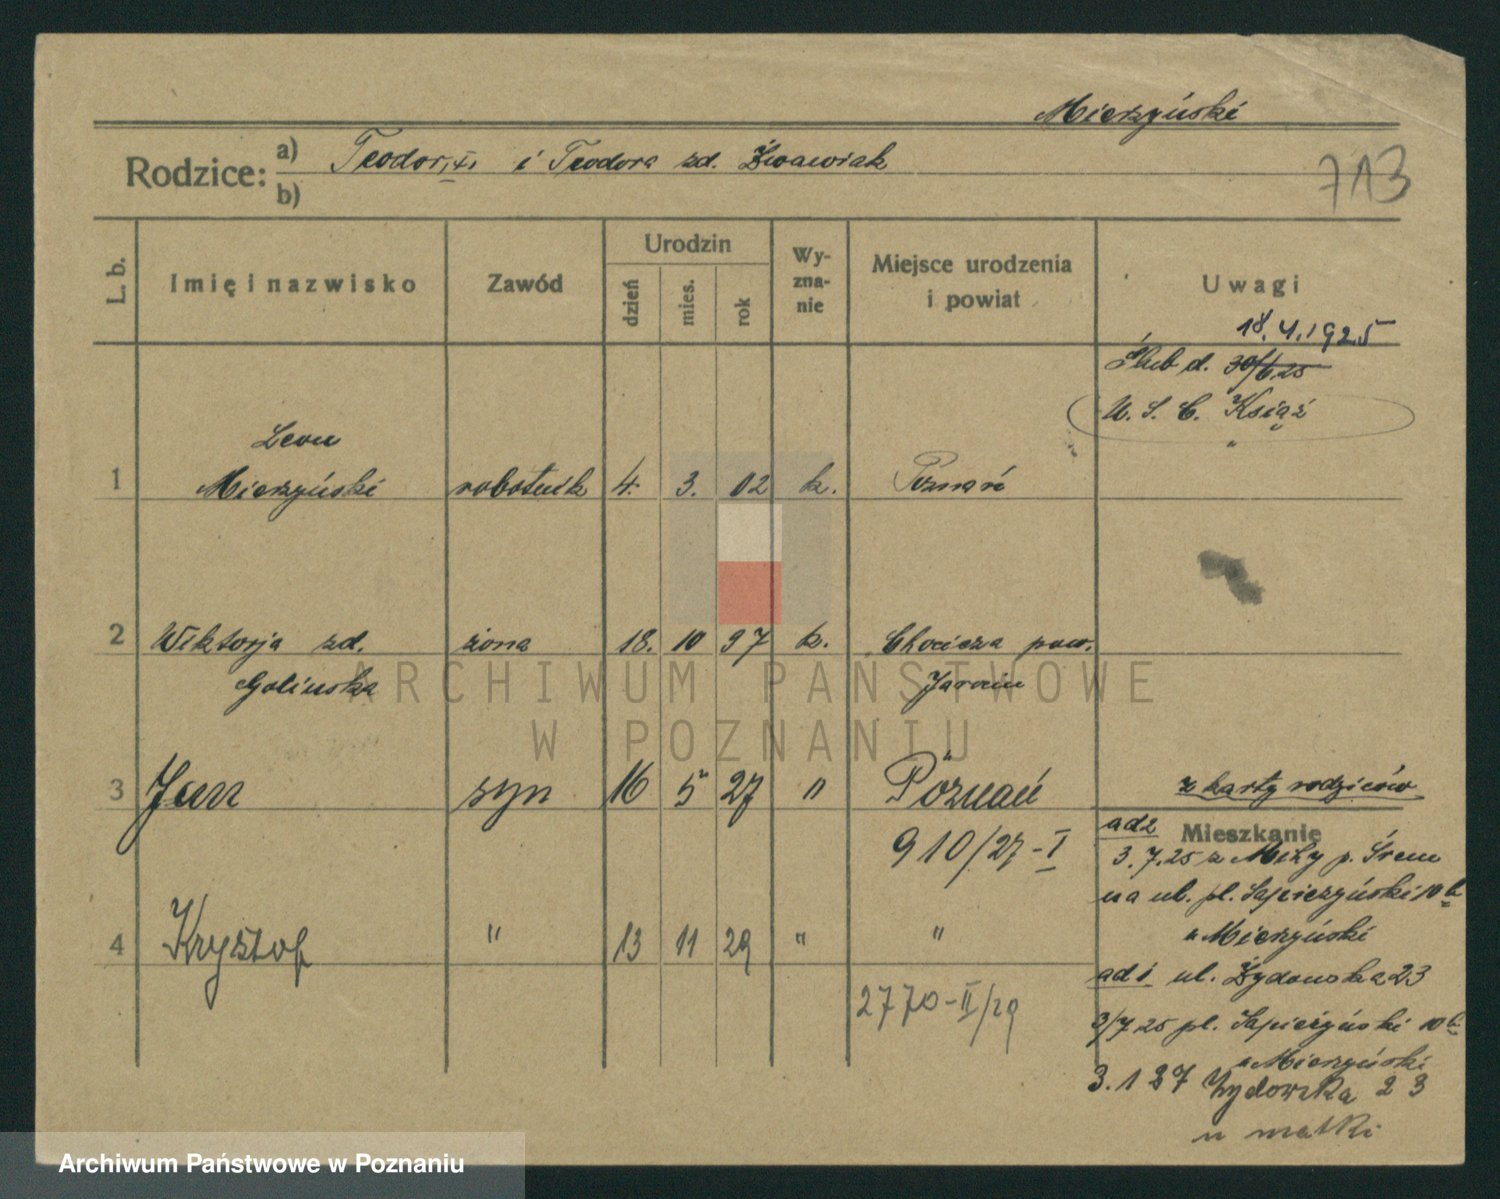 Mieżyński
Rodzice:
a) Teodor, +, i Teodora zd. Żwawiak
b)
713
L. b.
Imię i nazwisko
Zawód
Urodzin
dzień
mies.
rok
Wy-
zna-
nie
Miejsce urodzenia
i powiat
Uwagi
18.4.1925
Ślub d. 30/6 25
U. S. C. Książ
1 Leon
Mieżyński robotnik 4. 3. 02 k. Poznań
2 Wiktorja zd. żona 18. 10 97 k. Chocicza pow.
Golinska Jarocin
3 Jan syn 16 5 27 " Poznań
910/27-I
z karty rodziców
4 Krysztof " 13 11 29 " "
2770-II/29
Mieszkanie
ad 2
3.7.25 z Mchy p. Śrem
na ul. pl. Sapieżyński 10b
u Mieżyński
ad 1 ul. Żydowska 23
3/7 25 pl. Sapieżyński 10b
u Mieżyński
3.1 27 Żydowska 23
u matki
ARCHIWUM PAŃSTWOWE
W POZNANIU
Archiwum Państwowe w Poznaniu